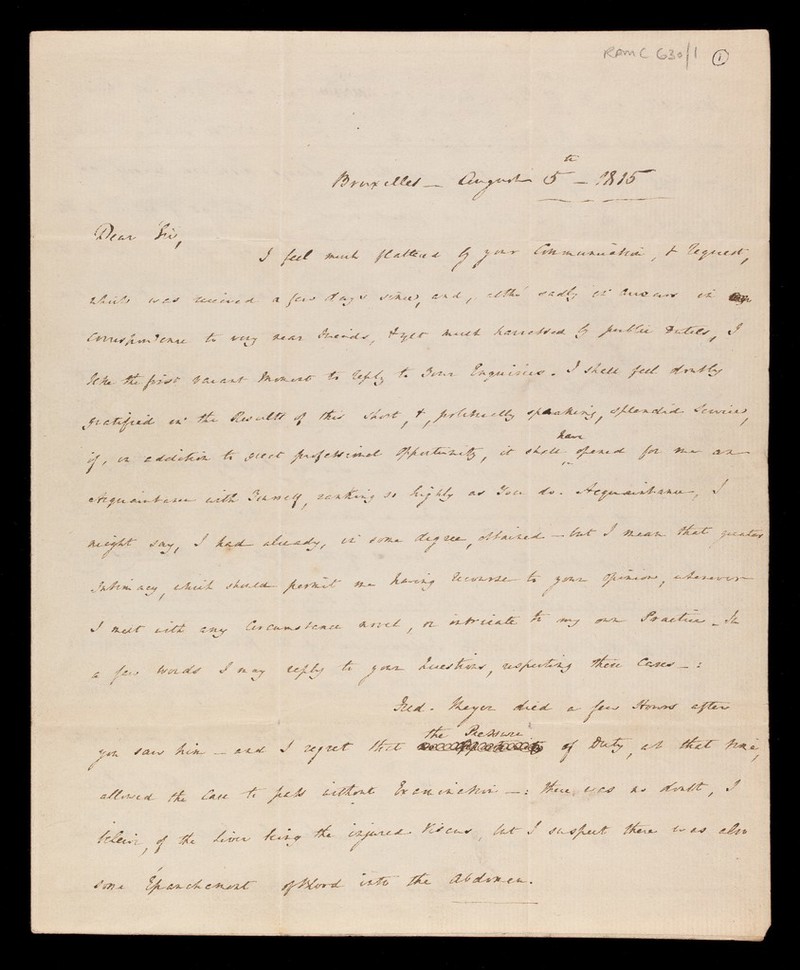 RAMC 630/1 ①
Bruxelles — August 5th — 1815
Dear Sir,
I feel much flattered by your Communication, & request,
which was received a few days since, and, altho' sadly in arrears in
Correspondence to very near Friends, & yet much harrassed by public duties, I
take the first vacant Moment to reply to Your Enquiries. I shall feel doubly
gratified in the Results of this short, &, professionally speaking, splendid Service,
if, in addition to great professional Opportunity, it shall have opened for me an
Acquaintance with Yourself, ranking so highly as You do. Acquaintance, I
might say, I had already, in some degree, obtained — but I mean that greater
Intimacy, which should permit me having recourse to your opinions, wherever
I meet with any Circumstance novel, or intricate to my own Practice — In
a few Words I may reply to your Questions, respecting these Cases — :
Fred. Meyer died a few Hours after
you saw him — and I regret that the Pressure of Duty, at that time,
allowed the Case to pass without Examination — : there was no doubt, I
believe, of the Liver being the injured Viscus, but I suspect there was also
some Epanchement of blood into the Abdomen.